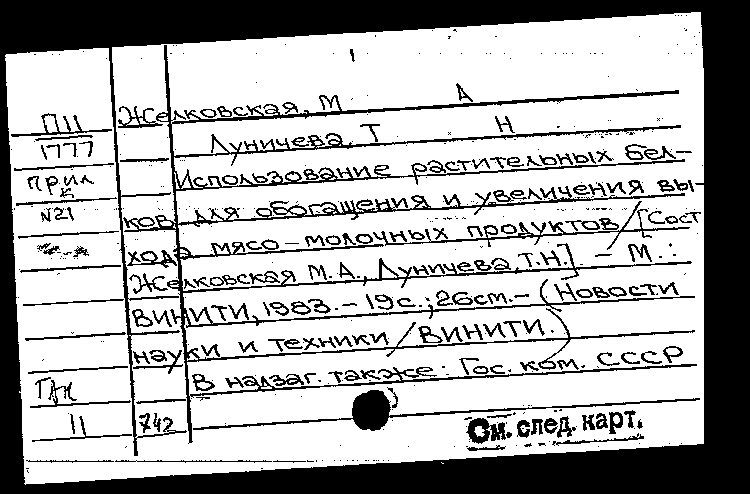 П11
1777
прил
к
N21
Желковская, М А
Луничева, Т Н
Использование растительных бел-
ков для обогащения и увеличения вы-
хода мясо-молочных продуктов / [Сост
Желковская М.А., Луничева, Т.Н.]. - М.:
ВИНИТИ, 1983. - 19с.; 26см. - (Новости
науки и техники / ВИНИТИ.)
В надзаг. также: Гос. ком. СССР
11
742
См. след. карт.